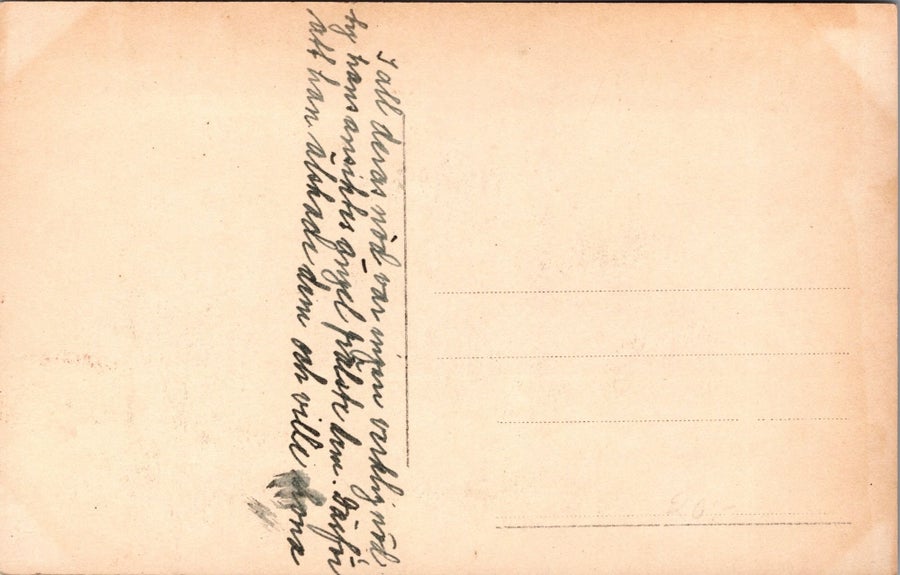 I all deras nöd var ingen verklig nöd
ty hans ansiktes ängel frälste dem. Därför
att han älskade dem och ville skona